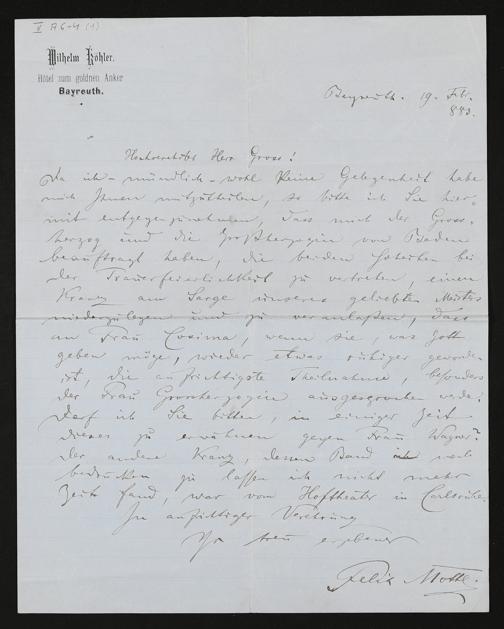 II A 6-4 (1)
Wilhelm Köhler.
Hôtel zum goldnen Anker
Bayreuth.
Bayreuth. 19. Febr.
883.
Hochverehrter Herr Gross!
Da ich – mündlich – wohl keine Gelegenheit habe
mich Ihnen mitzutheilen, so bitte ich Sie hier-
mit entgegenzunehmen, dass mich der Gross-
herzog und die Großherzogin von Baden
beauftragt haben, die beiden Hoheiten bei
der Trauerfeierlichkeit zu vertreten, einen
Kranz am Sarge unseres geliebten Meisters
niederzulegen und zu veranlassen, dass
an Frau Cosima, wenn sie, was Gott
geben möge, wieder etwas ruhiger geworden
ist, die aufrichtigste Theilnahme, besonders
der Frau Grossherzogin ausgesprochen werde.
Darf ich Sie bitten, in einiger Zeit
dieses zu erwähnen gegen Frau Wagner?
Der andere Kranz, dessen Band noch
bedrucken zu lassen ich nicht mehr
Zeit fand, war vom Hoftheater in Carlsruhe.
In aufrichtiger Verehrung
Ihr treu ergebener
Felix Mottl.